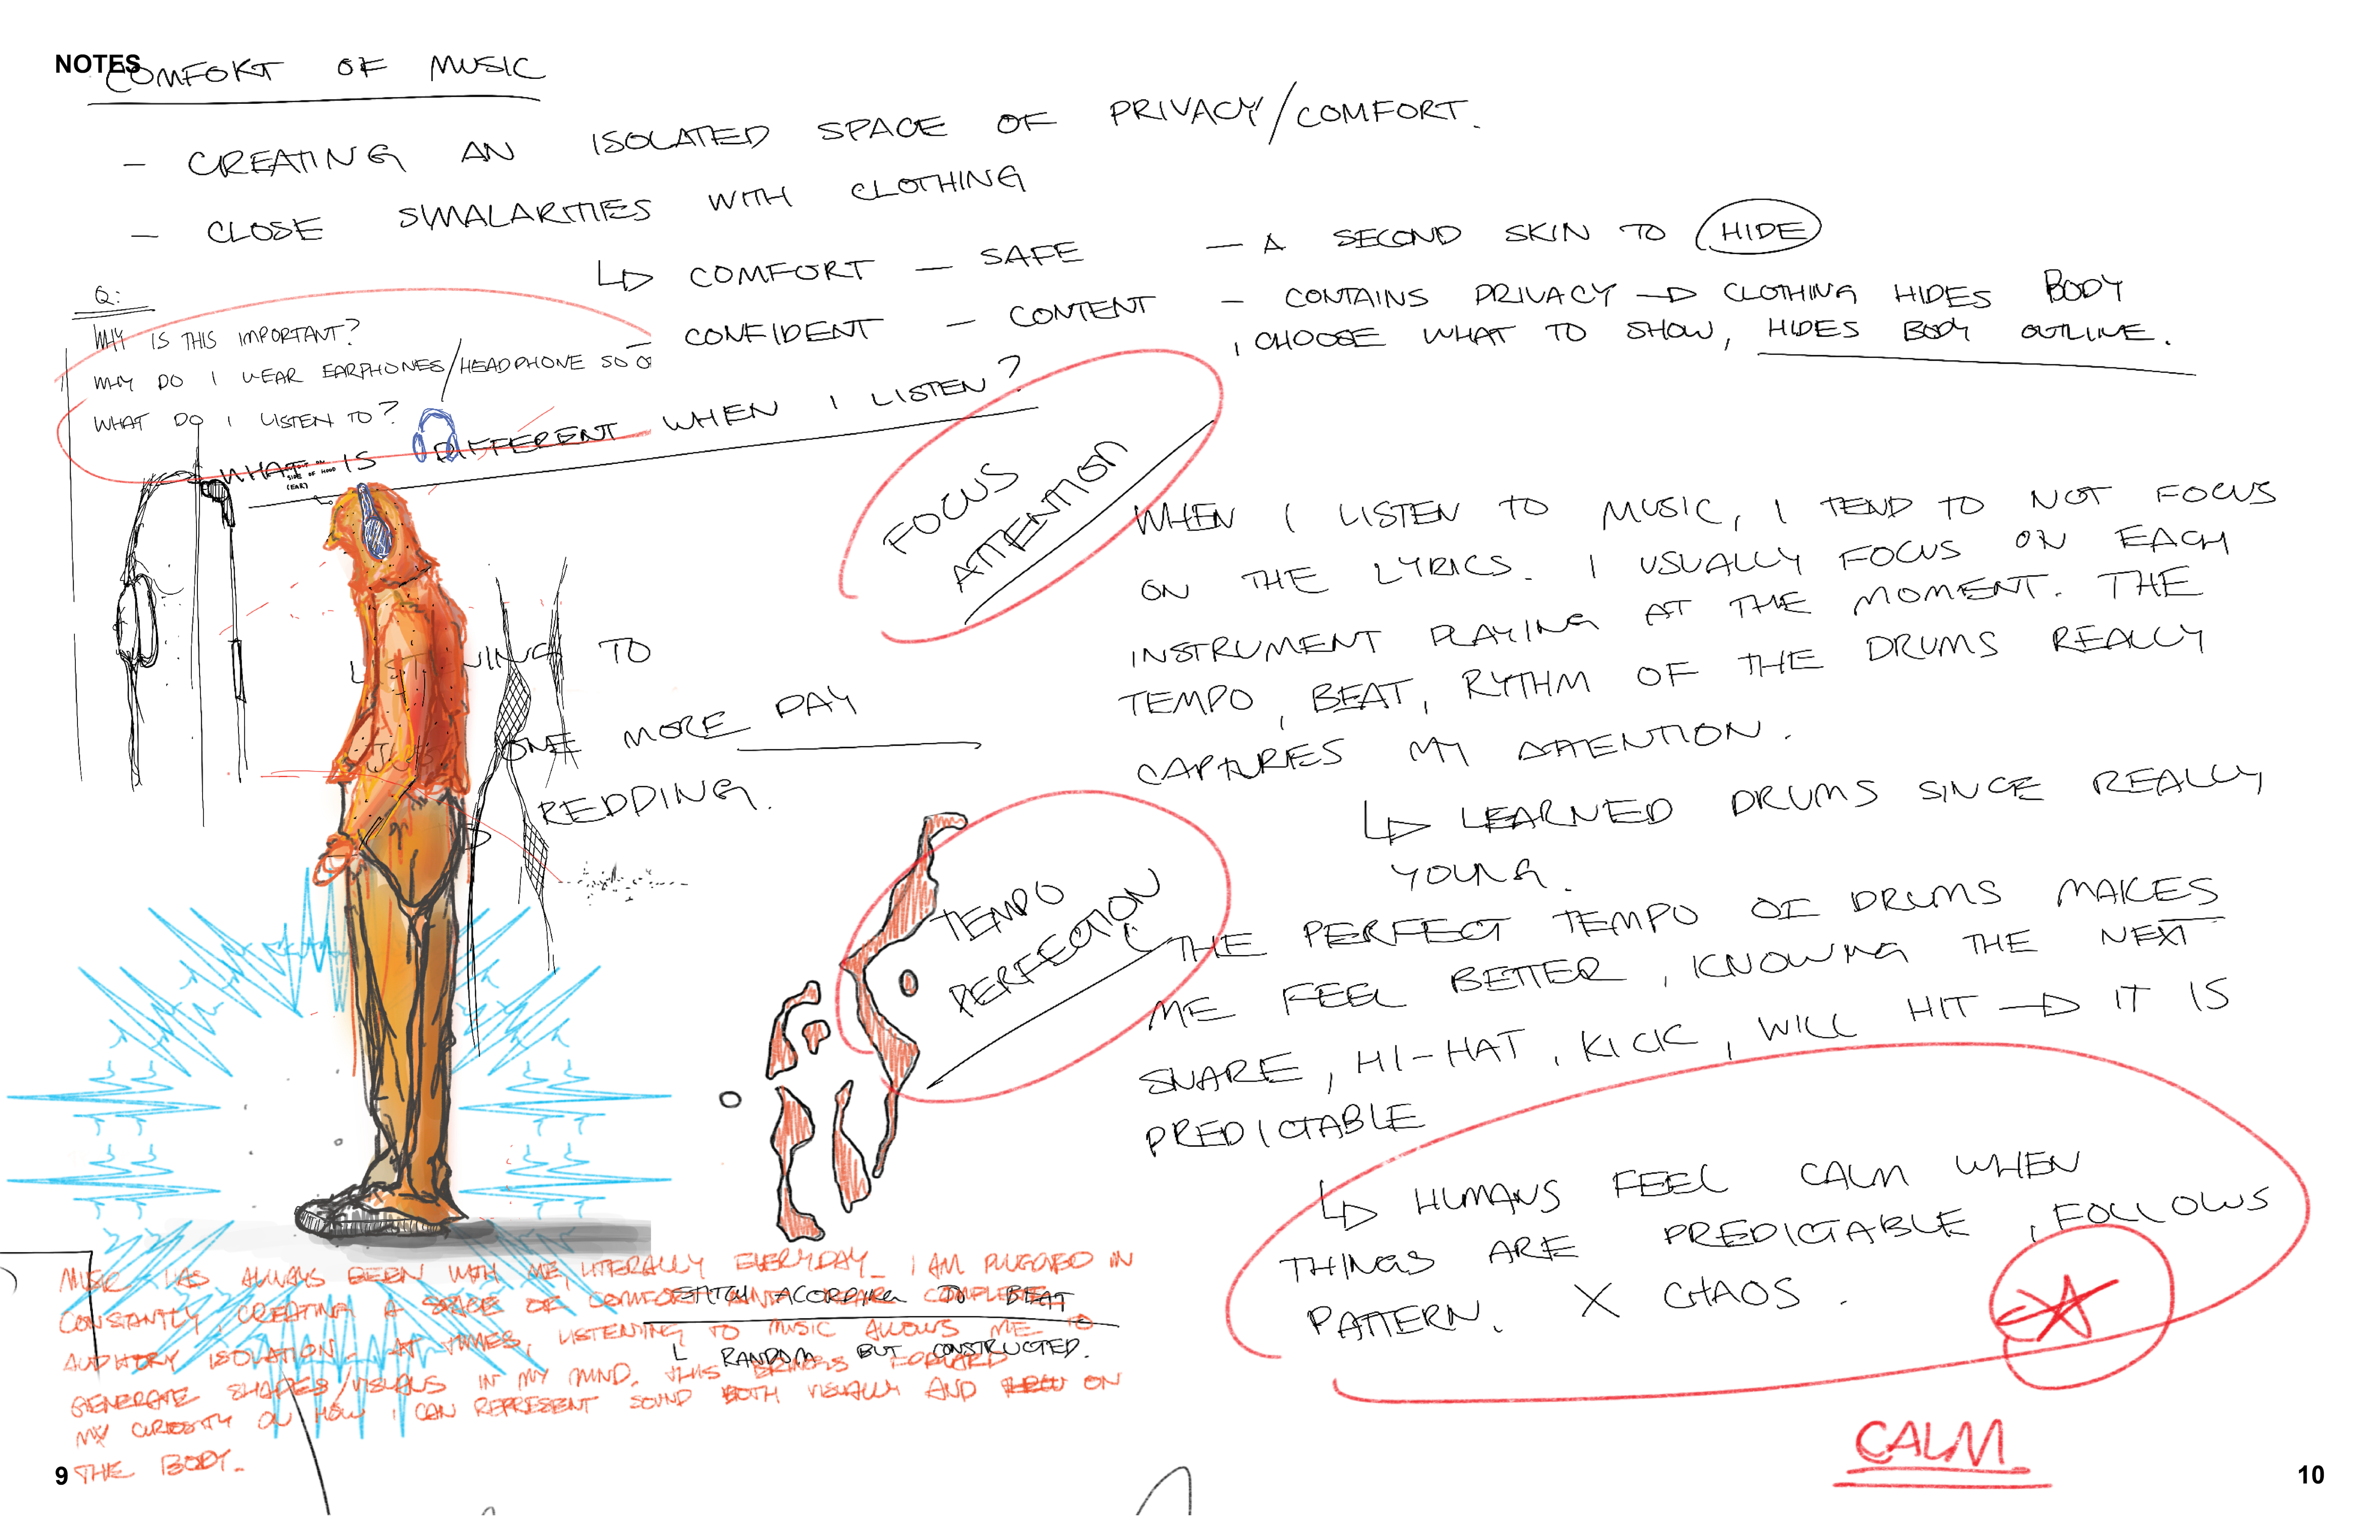 NOTES
COMFORT OF MUSIC
- CREATING AN ISOLATED SPACE OF PRIVACY/COMFORT.
- CLOSE SIMALARITIES WITH CLOTHING
↳ COMFORT - SAFE
- CONFIDENT - CONTENT
- A SECOND SKIN TO HIDE
- CONTAINS PRIVACY → CLOTHING HIDES BODY
, CHOOSE WHAT TO SHOW, HIDES BODY OUTLINE.
Q:
WHY IS THIS IMPORTANT?
WHY DO I WEAR EARPHONES/HEADPHONE SO
WHAT DO I LISTEN TO?
WHAT IS DIFFERENT WHEN I LISTEN?
SIDE OF HOOD
(EAR)
FOCUS
ATTENTION
WHEN I LISTEN TO MUSIC, I TEND TO NOT FOCUS
ON THE LYRICS. I USUALLY FOCUS ON EACH
INSTRUMENT PLAYING AT THE MOMENT. THE
TEMPO, BEAT, RYTHM OF THE DRUMS REALLY
CAPTURES MY ATTENTION.
↳ LEARNED DRUMS SINCE REALLY
YOUNG.
TO
ONE MORE DAY
REDDING.
TEMPO
PERFECTION
THE PERFECT TEMPO OF DRUMS MAKES
ME FEEL BETTER, KNOWING THE NEXT
SNARE, HI-HAT, KICK, WILL HIT → IT IS
PREDICTABLE
↳ HUMANS FEEL CALM WHEN
THINGS ARE PREDICTABLE, FOLLOWS
PATTERN. X CHAOS.
CALM
MUSIC HAS ALWAYS BEEN WITH ME, LITERALLY EVERYDAY. I AM PLUGGED IN
CONSTANTLY, CREATING A SPACE OF COMFORT COMPLETE
AUDITORY ISOLATION. AT TIMES, LISTENING TO MUSIC ALLOWS ME TO
GENERATE SHAPES/VISUALS IN MY MIND. THIS BRINGS FORWARD
MY CURIOSITY ON HOW I CAN REPRESENT SOUND BOTH VISUALLY AND ON
THE BODY.
ACORDING TO BEAT
RANDOM BUT CONSTRUCTED.
9
10